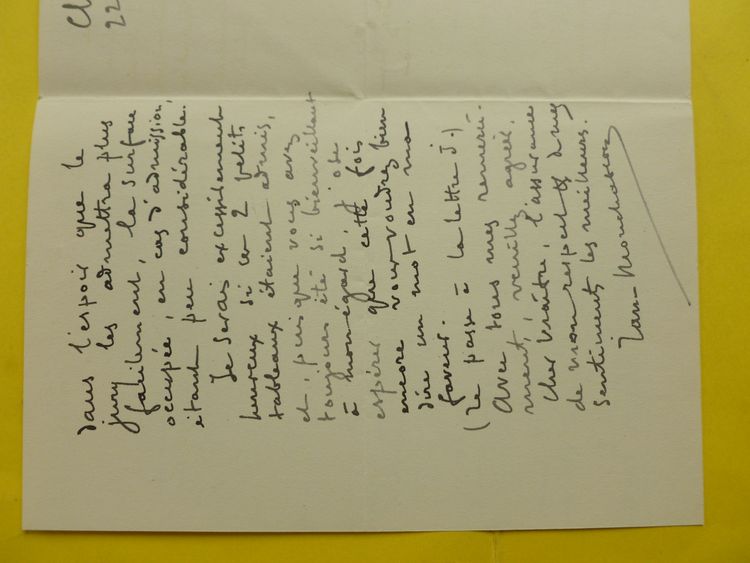 Ch
22
dans l'espoir que le
jury les admettra plus
facilement, la surface
occupée, en cas d'admission,
étant peu considérable.
Je serais excessivement
heureux si ces 2 petits
tableaux étaient admis,
et, puisque vous avez
toujours été si bienveillant
à mon égard, j'ose
espérer que cette fois
encore vous voudrez bien
dire un mot en ma
faveur.
(Je passe à la lettre J.)
Avec tous mes remercie-
ments, veuillez agréer,
cher Maître, l'assurance
de mon respect et de mes
sentiments les meilleurs.